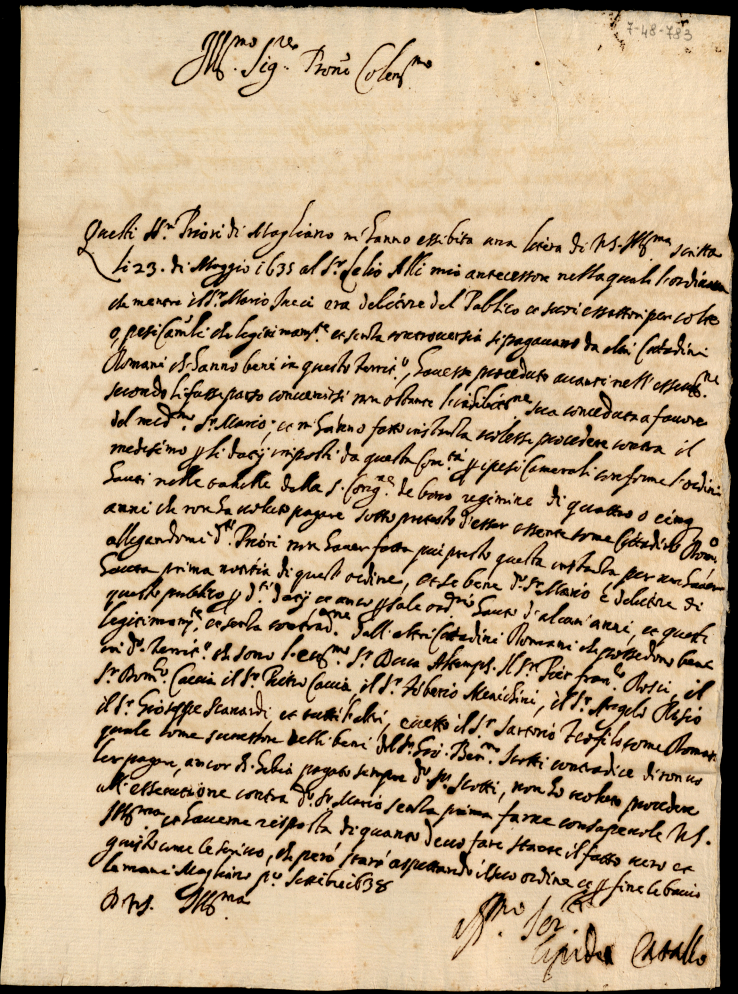 7-48-783
Ill.mo Sig.re Pron.e Colen.mo
Questi SS.ri Priori di Magliano m'hanno essibita una lettera di V.S. Ill.ma scritta
li 23. di Maggio 1635 al S.r Lelio Alli mio antecessore nella quale l'ordinava
che mentre il S.r Mario era debitore del Publico et suoi essattori per colte
o, pesi Cam.li che legitimam.te et senza controversia si pagavano da altri Cittadini
Romani ch'hanno beni in questo Territ.o, havesse proceduto avanti nell'essecut.ne
secondo li fusse parso convenirsi non ostante l'inhibit.ne sua conceduta a favore
del med.mo S.r Mario; et m'hanno fatto instanza volesse procedere contra il
medesimo p li datij imposti da questa Com.tà p i pesi Camerali conforme l'ordini
hauti nelle tabelle della S. Cong.ne de bono regimine di quattro o cinq
anni che non ha voluto pagare sotto pretesto d'esser essente come Cittadino Rom.o
allegandomi d.ti Priori non haver fatta più presto questa instanza per non haver
hauta prima notitia di questo ordine, et se bene d.o S.r Mario è debitore di
questo publico p d.ti datij et anco p sale ord.rio hauto d'alcuni anni, et questi
legitimam.te et senza contrad.ne dall'altri Cittadini Romani che possedono beni
in d.o Territ.o che sono l'ecc.mo S.r Duca Altemps. Il S.r Pier Fran.co Rosci, il
S.r Dom.co Caccia il S.r Pietro Caccia, il S.r Tiberio Menichini, il S.r Angelo Blasio
il S.r Gioseppe Scanardi, et tutti l'altri, eccetto il S.r Sartorio Teofilo come Romano
quale come successore delli beni del S.r Gio: Scotti contradice di non
le pagare, ancor ch'habia pagato sempre d.o S.r Scotti, non ho voluto procedere
all'essecutione contra d.o S.r Mario senza prima farne consapevole V.S.
Ill.ma et haverne risposta di quanto devo fare stante il fatto vero et
giusto come le scrivo, che però starò aspettando il suo ordine et p fine le bacio
le mani Magliano p.o Settebre 1638
D V.S. Ill.ma
Aff.mo Ser.re
Cavallo